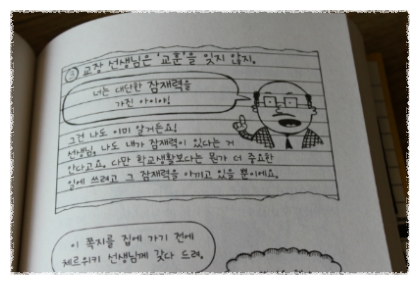 ③ 교장 선생님은 '교훈'을 잊지 않지.
너는 대단한 잠재력을
가진 아이야!
그건 나도 이미 알거든요!
선생님, 나도 내가 잠재력이 있다는 거
안다고요. 다만 학교생활보다는 뭔가 더 중요한
일에 쓰려고 그 잠재력을 아끼고 있을 뿐이에요.
이 쪽지를 집에 가기 전에
체르위키 선생님께 갖다 드려.